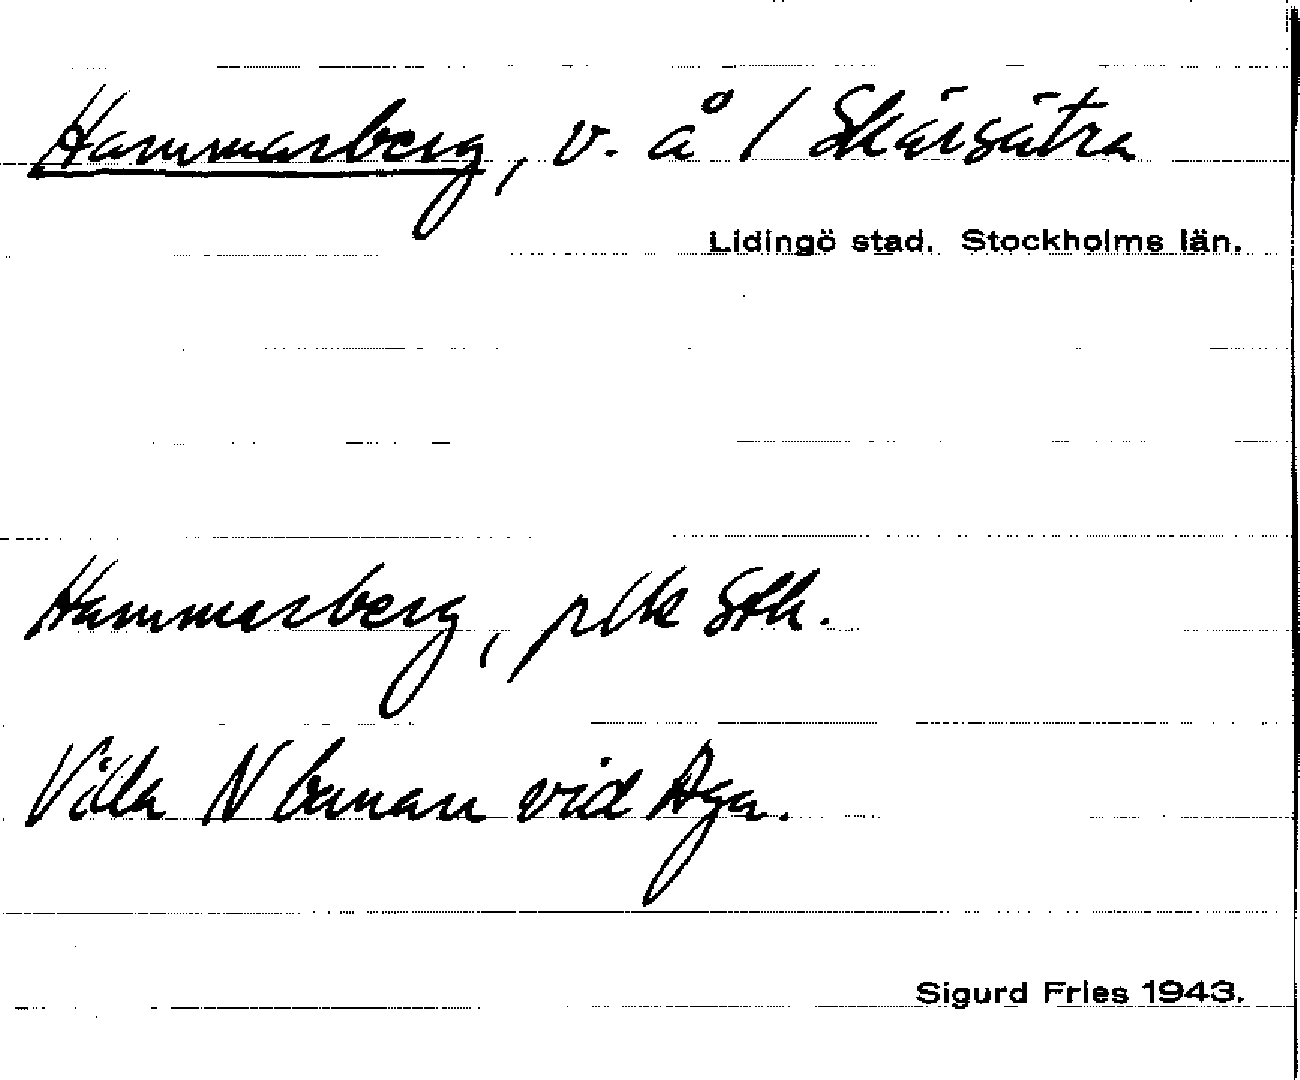 Hammarberg, v. å / Skärsätra
Lidingö stad. Stockholms län.
Hammarberg, plk Sthl.
Villa N banan vid Aga.
Sigurd Fries 1943.